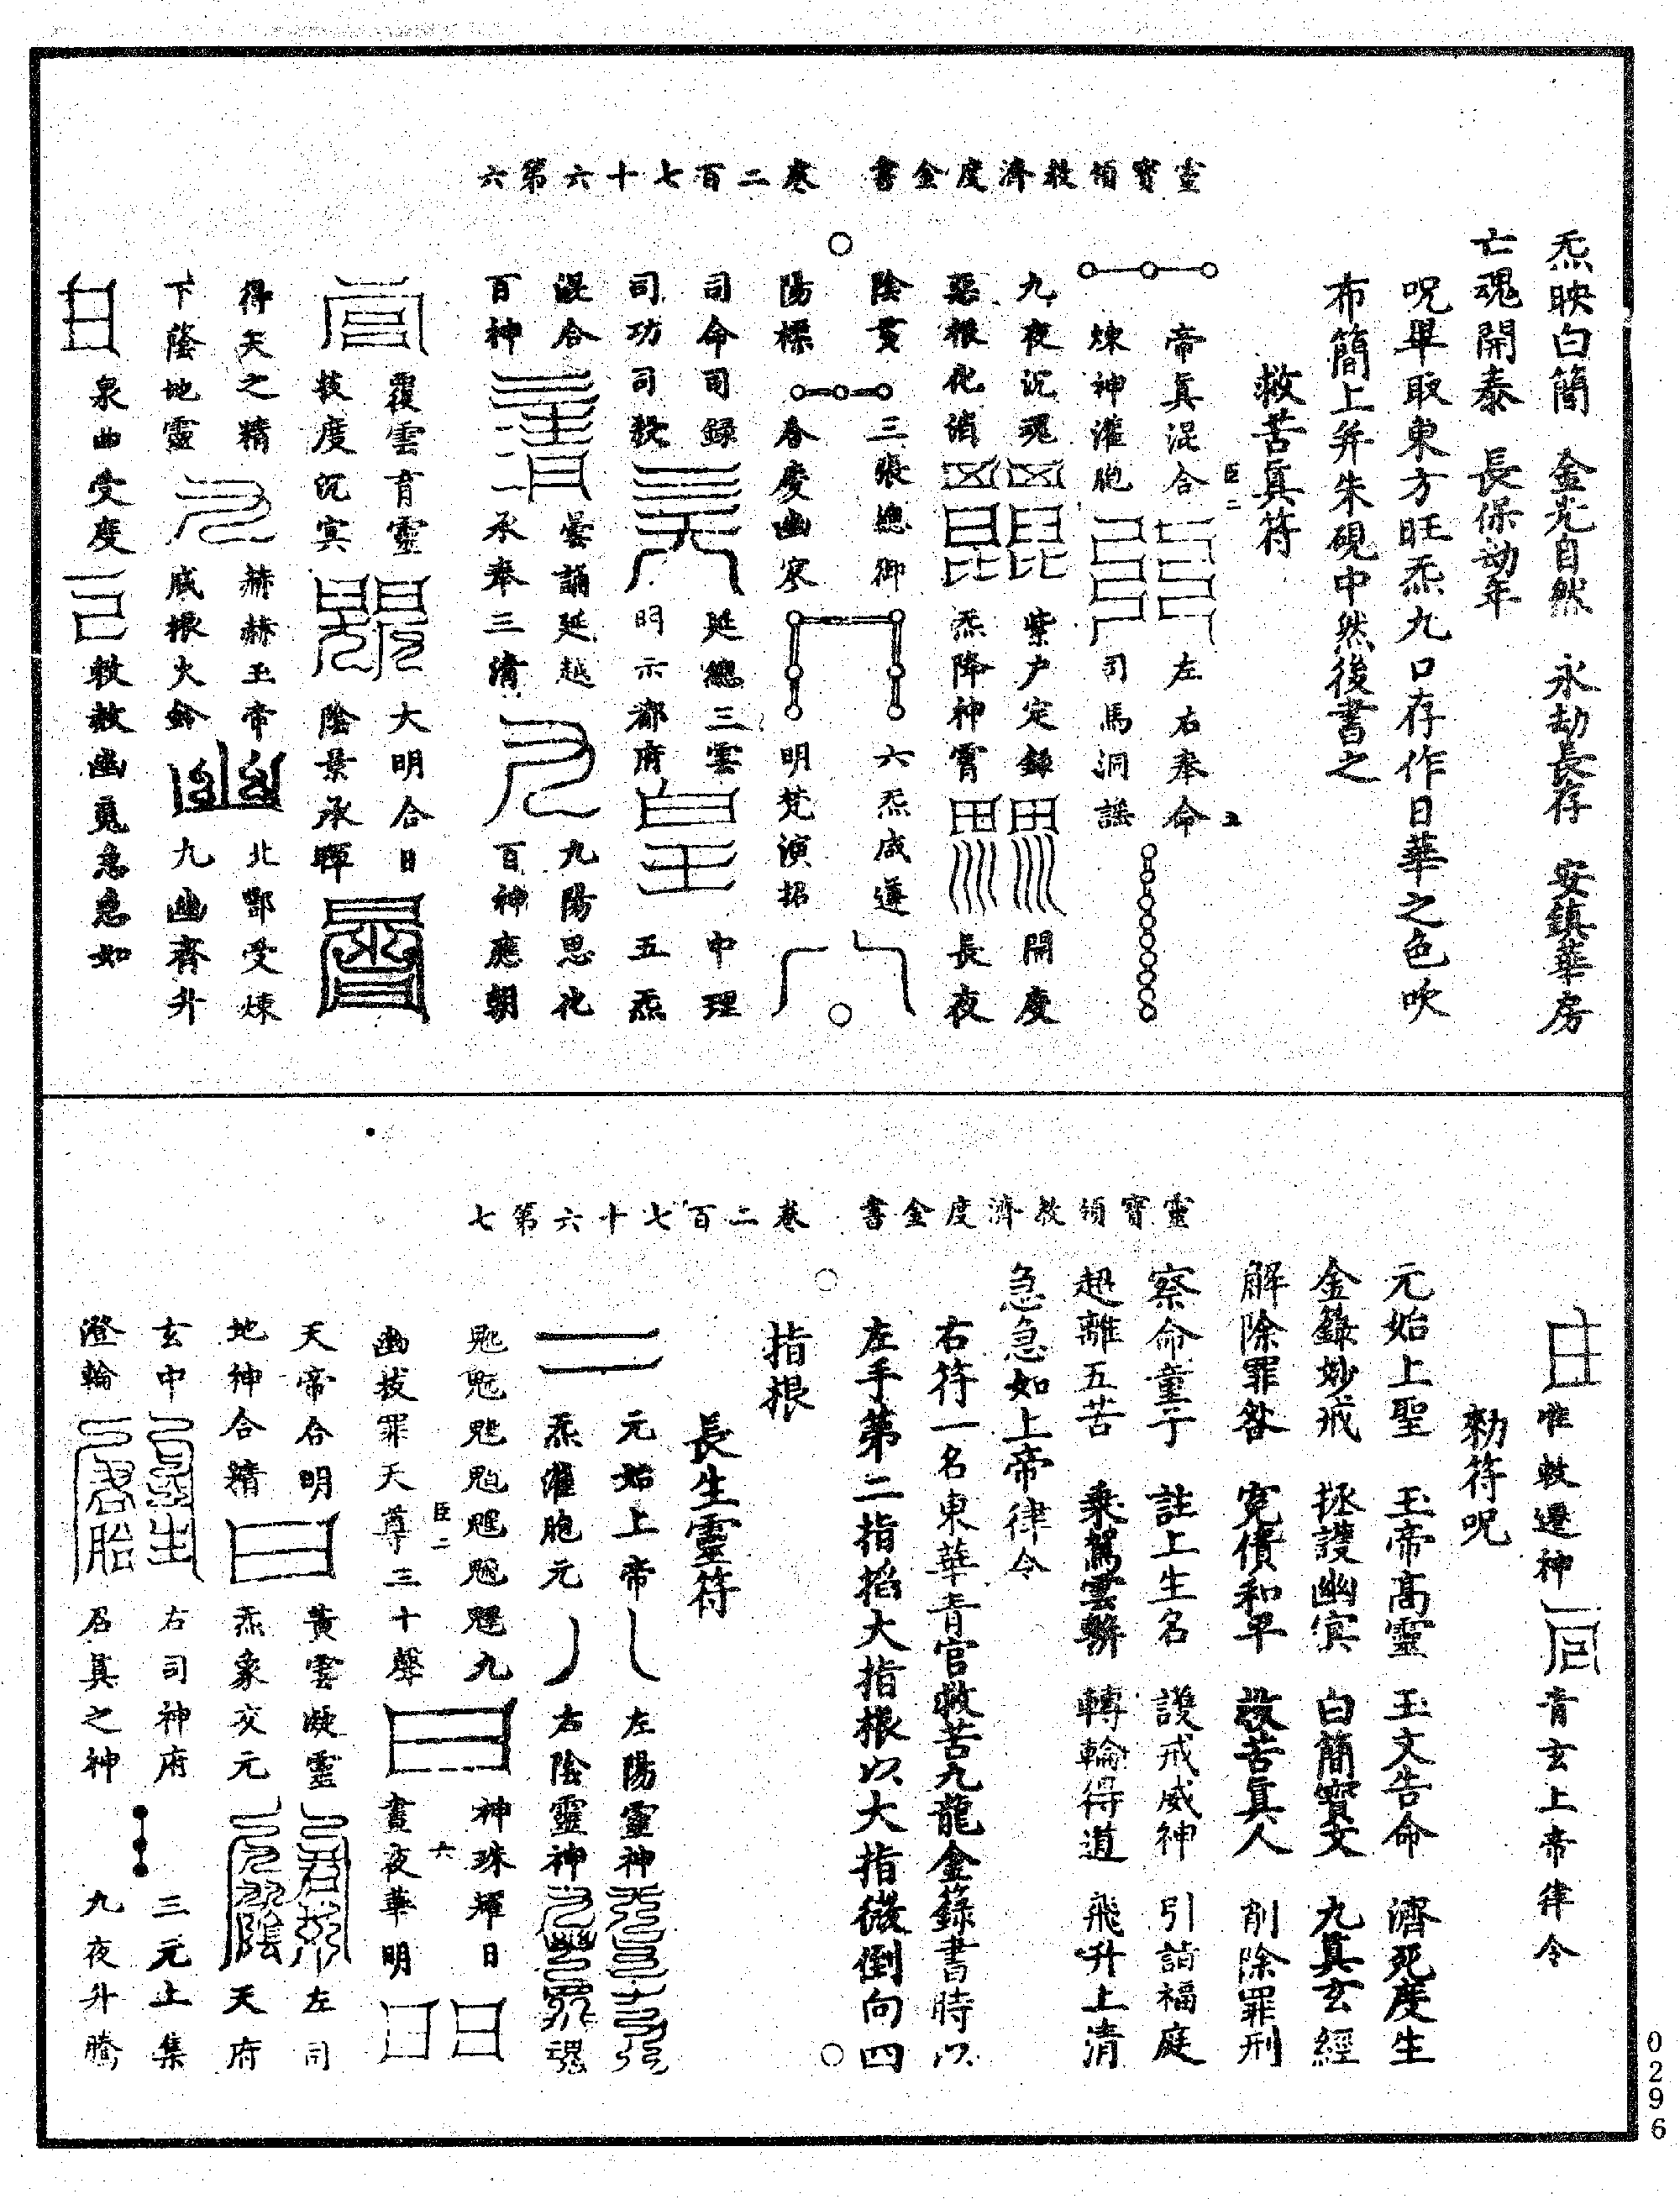 靈寶領教濟度金書　卷二百七十六第六
炁映白簡　金光自然　永劫長存　安鎮華房
亡魂開泰　長保劫年
呪畢取東方旺炁九口存作日華之色吹
布簡上并朱硯中然後書之
救苦真符
臣二　五
帝真混合　左右奉命
煉神灌胞　司馬洞謠
九夜沉魂　紫户定錄　開度
惡根化消　炁降神霄　長夜
陰貫　三張總御　六炁咸遵
陽標　春慶幽寥　明梵演招
司命司錄　延總三雲　中理
司功司殺　明示都府　五炁
混合　曇誦延越　九陽思化
百神　承奉三清　百神應朝
覆雲育靈　大明合日
拔度沉冥　陰景承暉
得天之精　赫赫玉帝　北酆受煉
下蔭地靈　威振火鈴　九幽齊升
泉曲受度　敕救幽魂急急如
靈寶領教濟度金書　卷二百七十六第七
唯敕遷神　青玄上帝律令
勑符呪
元始上聖　玉帝高靈　玉文告命　濟死度生
金錄妙戒　拯護幽冥　白簡寶文　九真玄經
解除罪咎　寃債和平　救苦真人　削除罪刑
察命童子　註上生名　護戒威神　引詣福庭
超離五苦　乘駕雲軿　轉輪得道　飛升上清
急急如上帝律令
右符一名東華青宮救苦九龍金籙書時以
左手第二指搯大指根以大指微倒向四
指根
長生靈符
元始上帝　左陽靈神
炁灌胞元　右陰靈神　魂
九　神珠耀日
幽拔罪天尊三十聲　晝夜華明
臣二　六
天帝合明　黃雲凝靈　左司
地神合精　炁象交元　天府
玄中　右司神府　三元上集
澄輪　胎　召真之神　九夜升騰
0296